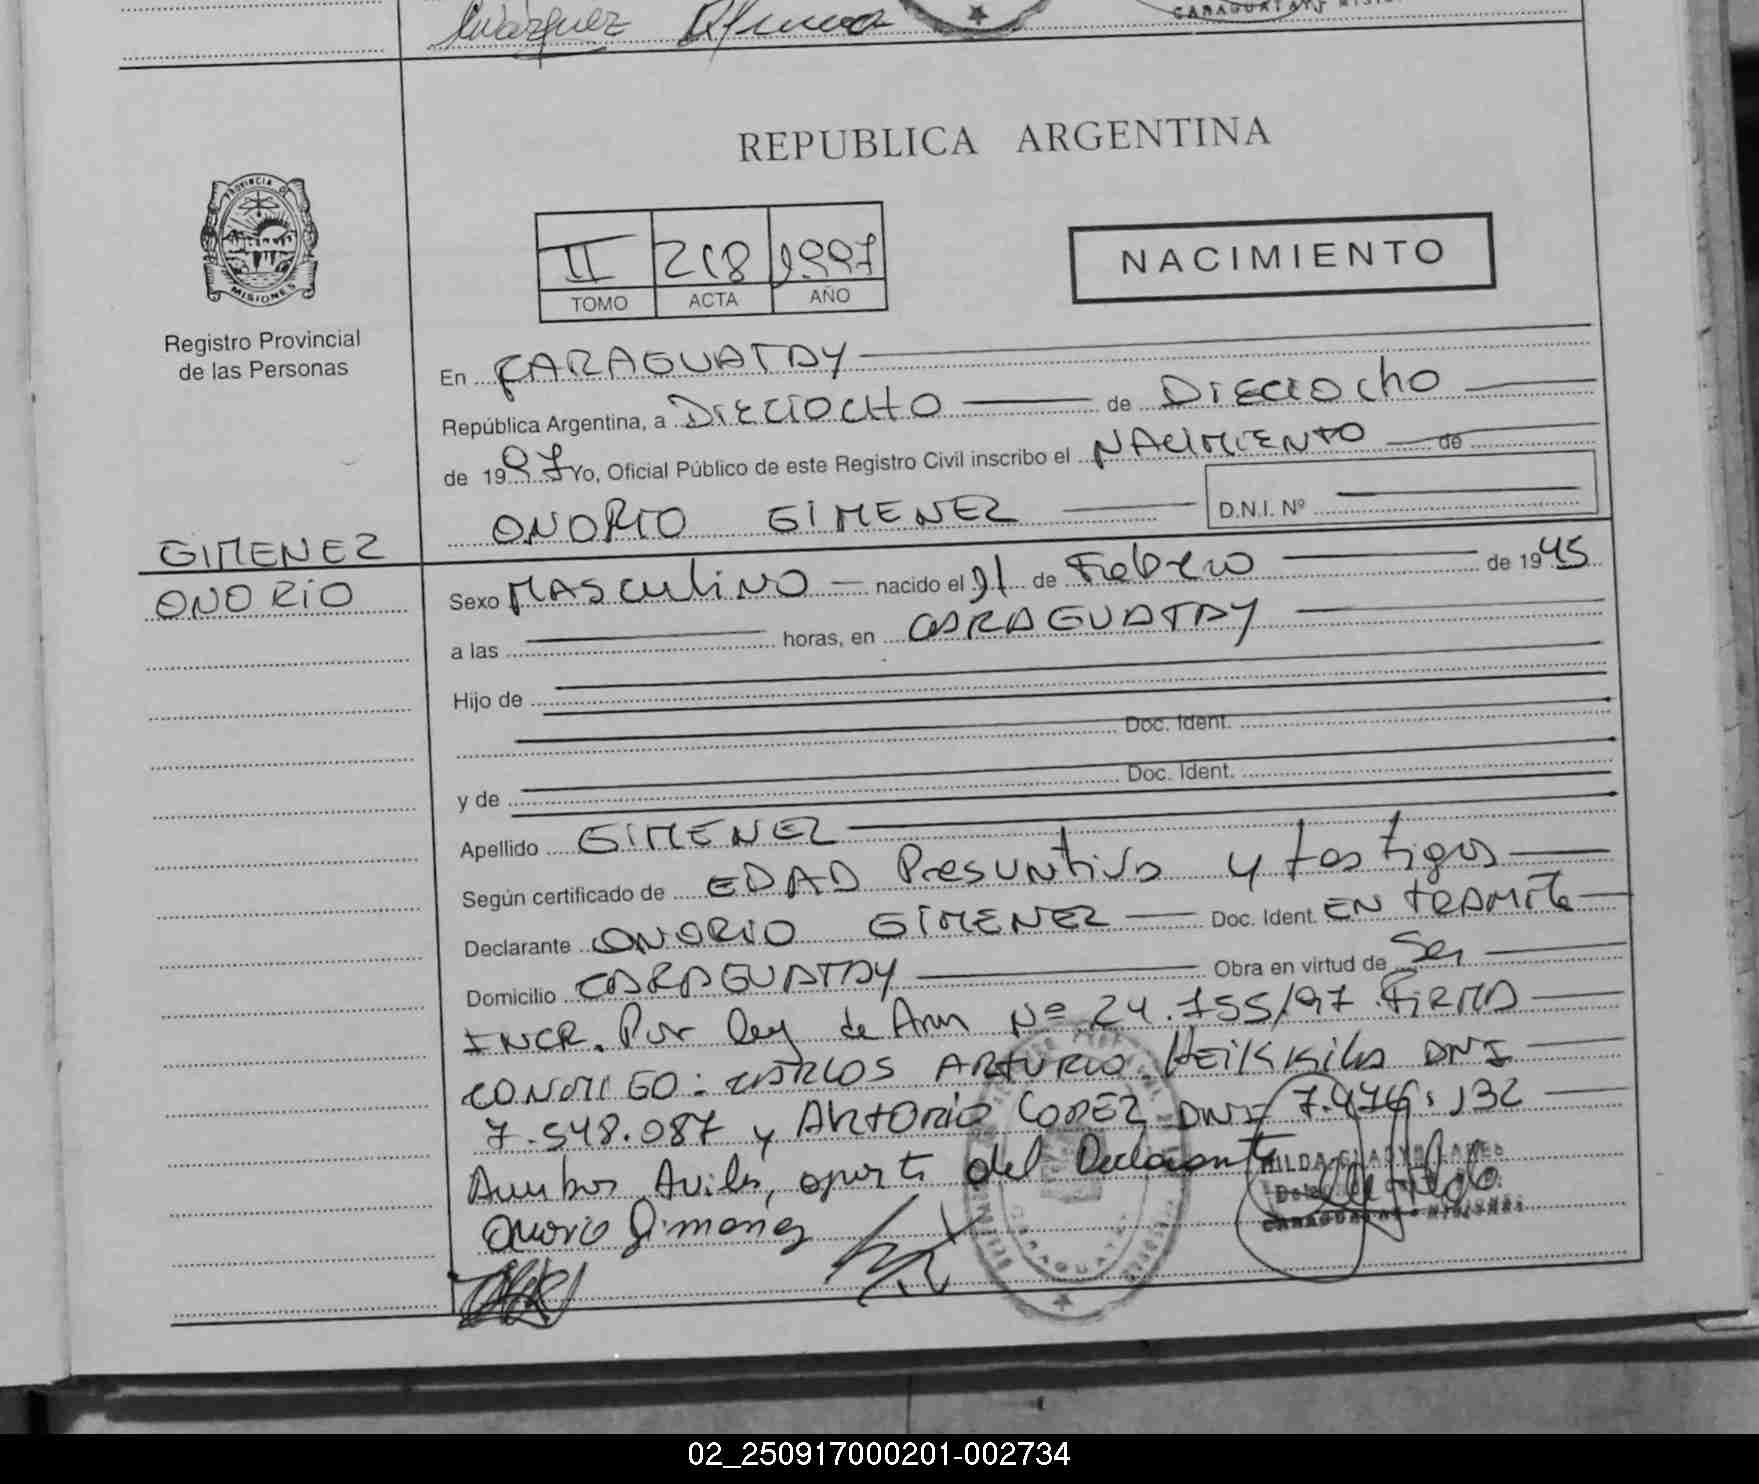 Vazquez
CARAGUATAY MISI
REPUBLICA ARGENTINA
PROVINCIA DE
MISIONES
Registro Provincial
de las Personas
II 218 1997
TOMO ACTA AÑO
NACIMIENTO
En CARAGUATAY
República Argentina, a DIECIOCHO de DIECIOCHO
de 1997 Yo, Oficial Público de este Registro Civil inscribo el NACIMIENTO de
ONORIO GIMENEZ D.N.I. Nº
GIMENEZ
ONORIO
Sexo MASCULINO nacido el 21 de Febrero de 1945
a las horas, en CARAGUATAY
Hijo de
Doc. Ident.
y de Doc. Ident.
Apellido GIMENEZ
Según certificado de EDAD Presuntiva y testigos
Declarante ONORIO GIMENEZ Doc. Ident. EN TRAMITE
Domicilio CARAGUATAY Obra en virtud de Ser
INCR. Por ley de Amn Nº 24.755/97 FIRMA
CONMIGO: CARLOS ARTURO HEIKKILA DNI
7.548.087 y ANTONIO LOPEZ DNI 7.476.132
Ambos Aviles, aparte del Declarante
Onorio Gimenez
HILDA GLADYS
CARAGUATAY - MISIONES
CARAGUATAY
02_250917000201-002734